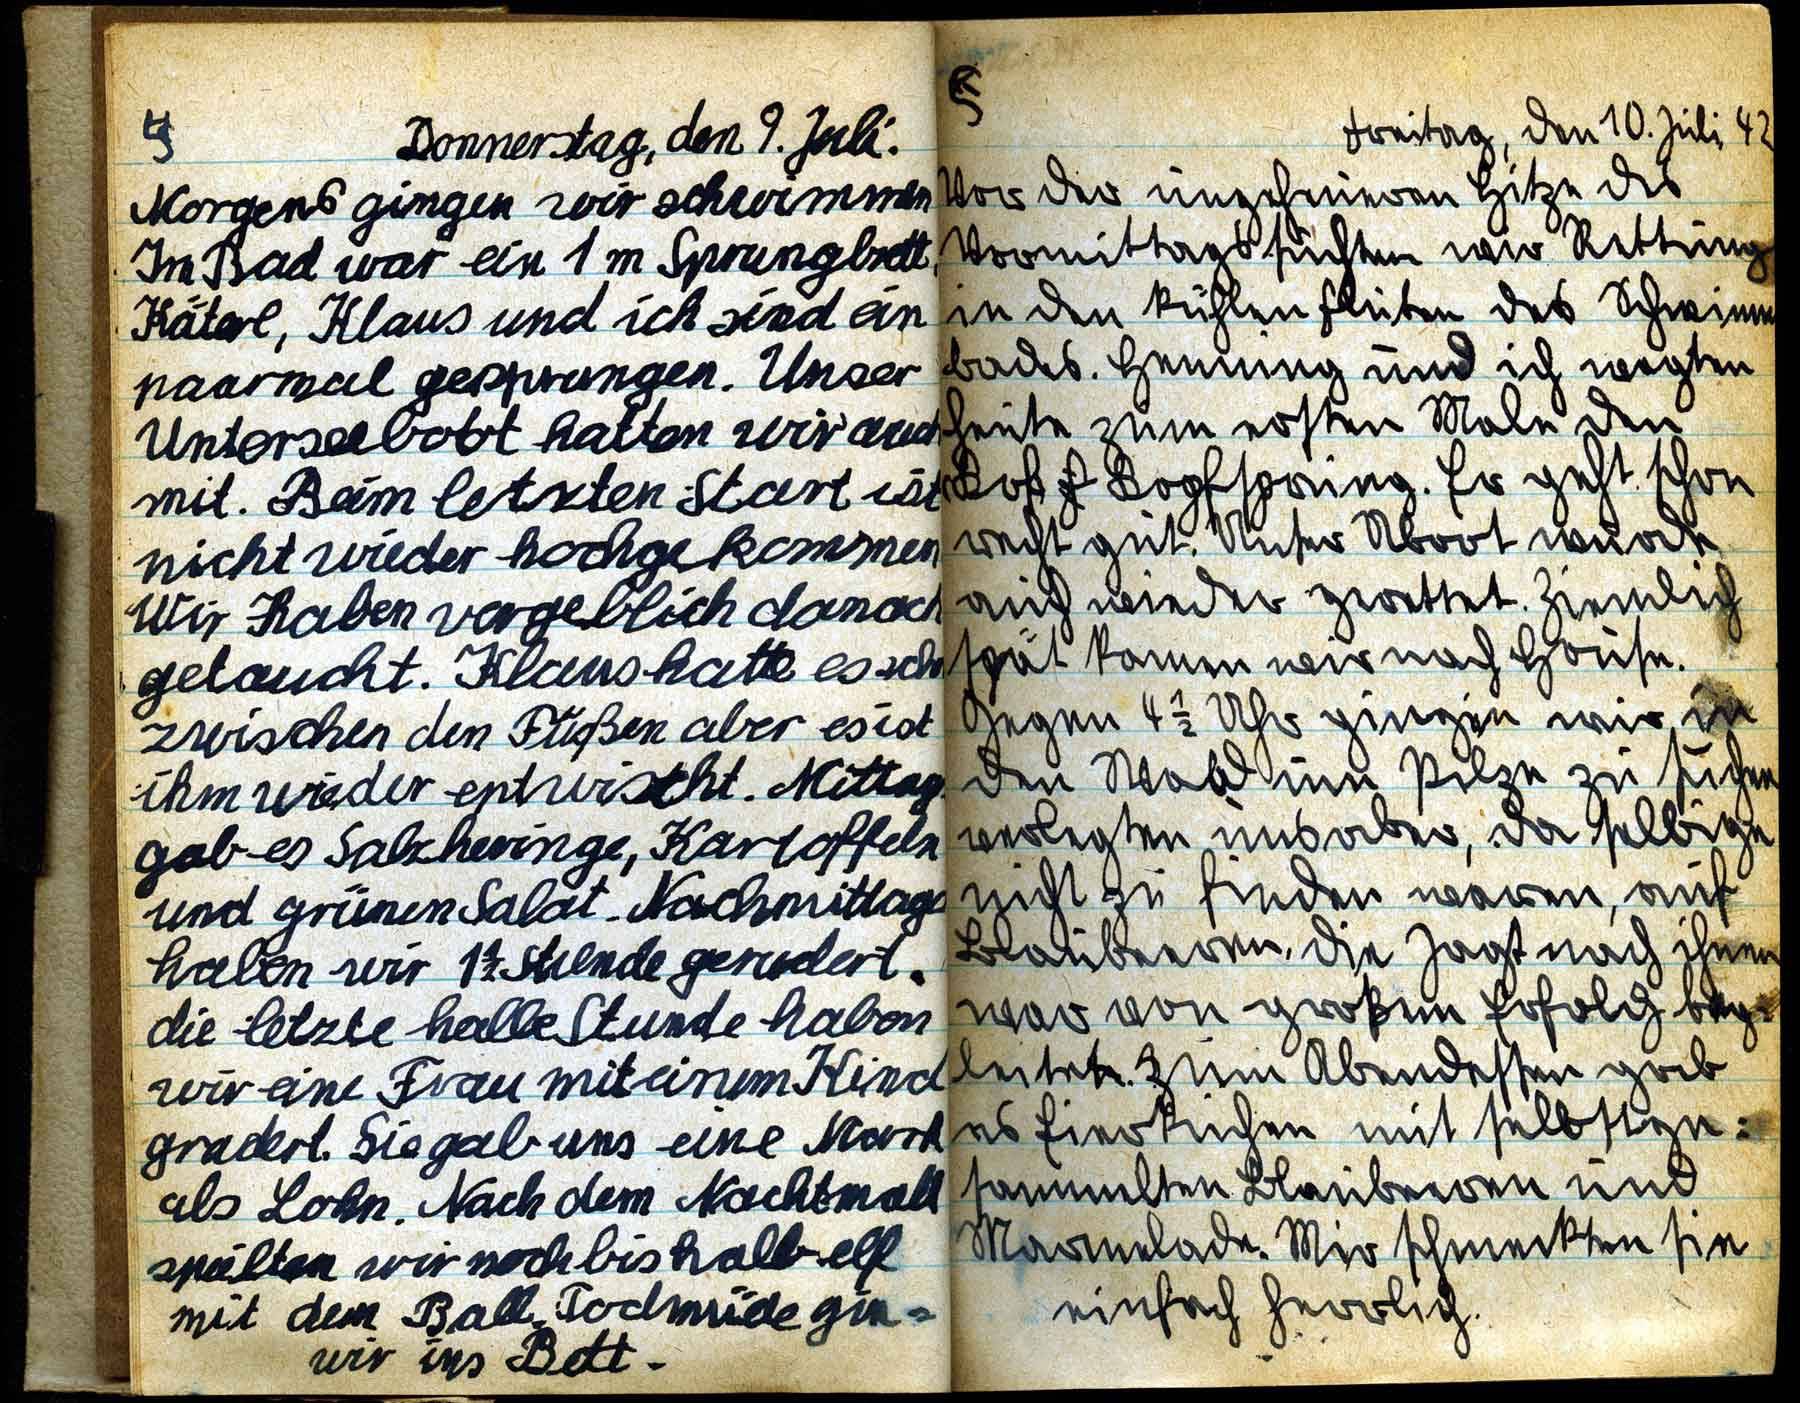 4
Donnerstag, den 9. Juli.
Morgens gingen wir schwimmen
Im Bad war ein 1 m Sprungbrett.
Käterl, Klaus und ich sind ein
paarmal gesprungen. Unser
Unterseeboot hatten wir auch
mit. Beim letzten Start ist
nicht wieder hochgekommen
Wir haben vergeblich danach
getaucht. Klaus hatte es scho
zwischen den Füßen aber es ist
ihm wieder entwischt. Mittag
gab es Salzheringe, Kartoffeln
und grünen Salat. Nachmittags
haben wir 1½ Stunde gerudert.
die letzte halbe Stunde haben
wir eine Frau mit einem Kind
gradert. Sie gab uns eine Mark
als Lohn. Nach dem Nachtmall
spielten wir noch bis halb elf
mit dem Ball. Todmüde gin=
wir ins Bett.
5
Freitag, den 10. Juli 42
Vor der ungeheueren Hitze des
Vormittags suchten wir Rettung
in den kühlen Fluten des Schwimm
bades. Henning und ich wagten
heute zum ersten Male den
Kopfsprung. Er geht schon
recht gut. Unser Uboot wurde
auch wieder gerettet. Ziemlich
spät kamen wir nach Hause.
Gegen 4½ Uhr gingen wir in
den Wald um Pilze zu suchen
verlegten uns aber, da selbige
nicht zu finden waren, auf
Blaubeeren. Die Jagt nach ihnen
war von großem Erfolg beg=
leitet. Zum Abendessen gab
es Eierkuchen mit selbstge=
sammelten Blaubeeren und
Marmelade. Mir schmeckten sie
einfach herrlich.